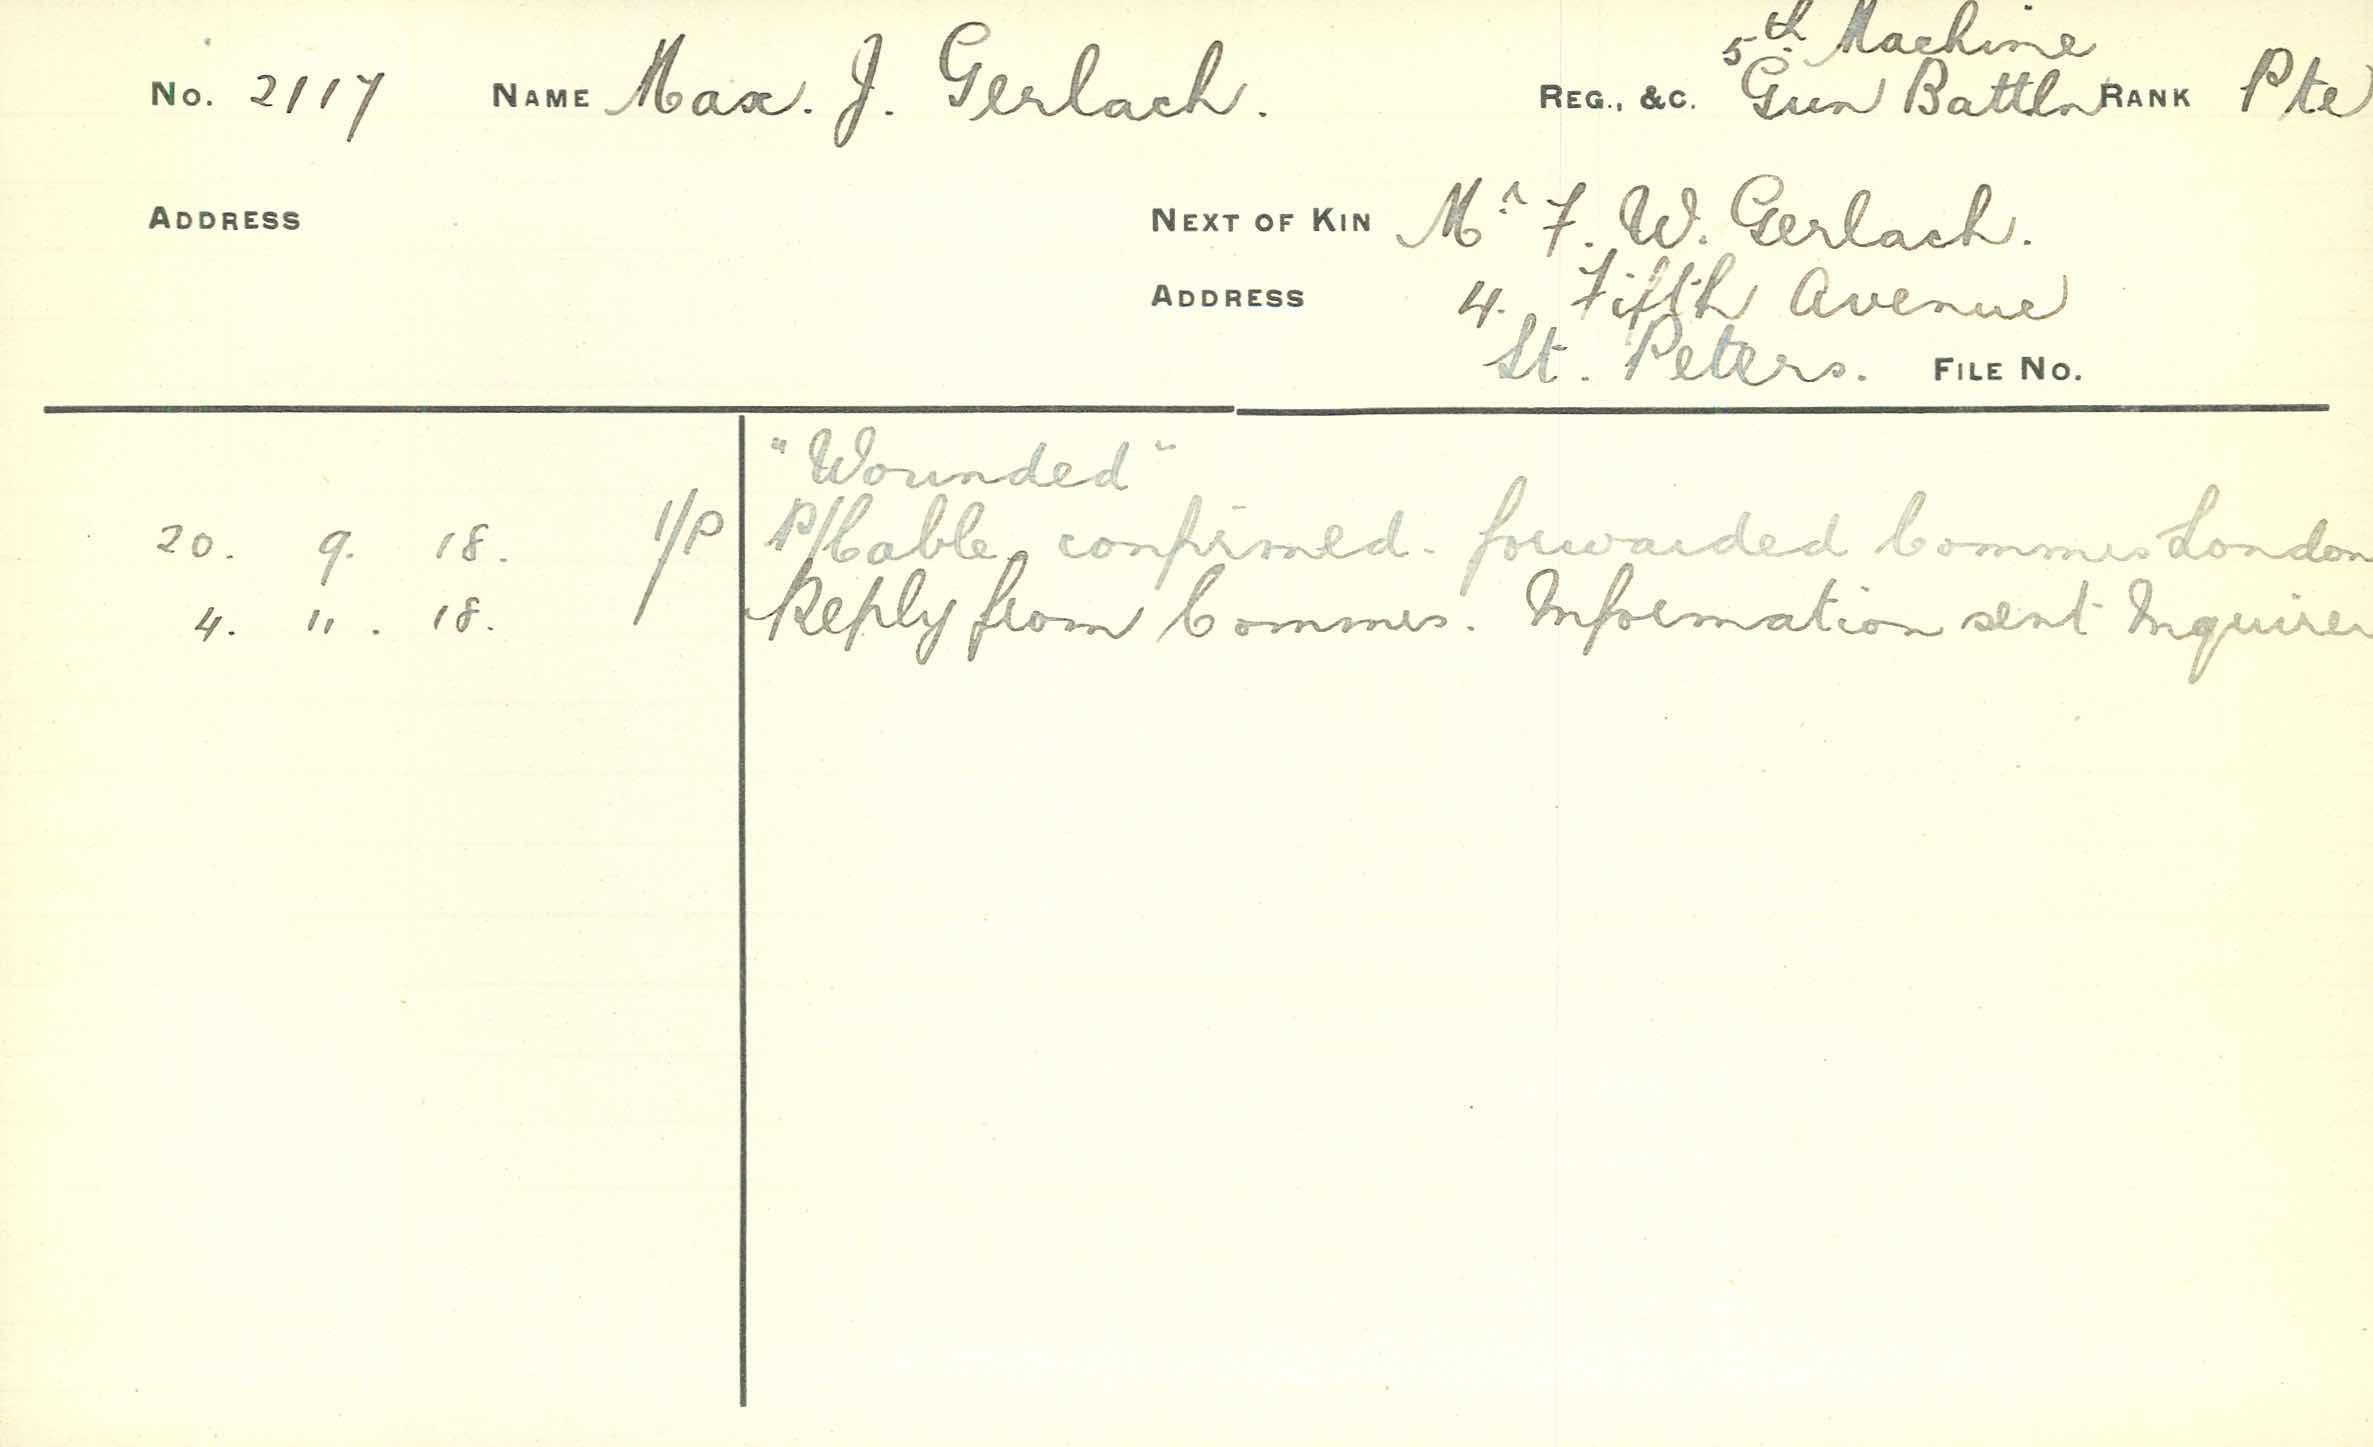 5th Machine
No. 2117 NAME Max. J. Gerlach. REG., &C. Gun Battln RANK Pte
ADDRESS NEXT OF KIN Mr F. W. Gerlach.
ADDRESS 4. Fifth Avenue
St. Peters. FILE No.
"Wounded"
20. 9. 18. 1/P P/Cable, confirmed. forwarded Commis London
4. 11. 18. Reply from Commis. Information sent Inquirer